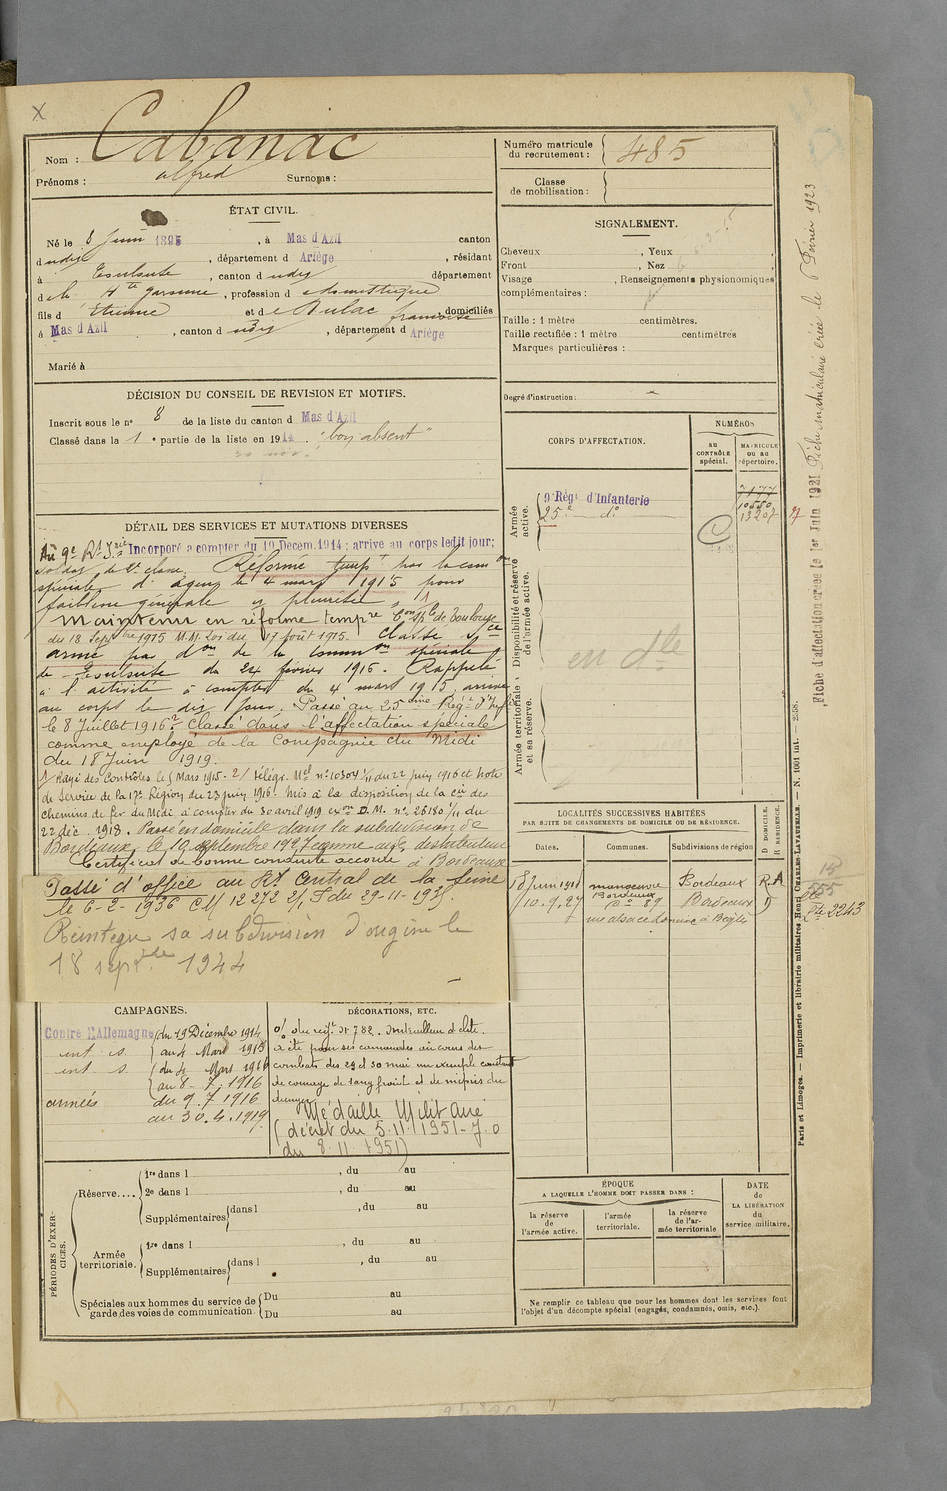 Nom : Cabanac
Prénoms : alfred Surnoms :
ÉTAT CIVIL.
Né le 8 Juin 1895, à Mas d Azil canton
dudit, département d Ariège, résidant
à Toulouse, canton dudit département
de la Hte Garonne, profession d
fils d Etienne et de Dulac françoise domiciliés
à Mas d Azil, canton dudit, département d Ariège
Marié à
DÉCISION DU CONSEIL DE REVISION ET MOTIFS.
Inscrit sous le n° 8 de la liste du canton d Mas d'Azil
Classé dans la 1e partie de la liste en 1914. "bon absent"
DÉTAIL DES SERVICES ET MUTATIONS DIVERSES
Au 9e Rt Irie Incorporé a compter du 19 Decem.1914; arrivé au corps ledit jour;
soldat de 2e classe. Réformé tempre par la comon
spéciale d'Agen le 4 mars 1915 pour
faiblesse générale et pleurésie 1/
Maintenu en réforme tempre Con sple de Toulouse
du 18 Septbre 1915 M.M. Loi du 17 Août 1915. Classé Sce
armé par don de la common spéciale
de Toulouse du 24 février 1916. Rappelé
à l'activité à compter du 4 mars 1915, arrivé
au corps le dit jour. Passé au 25ème Régt d'Infie
le 8 Juillet 1916 2/ Classé dans l'affectation spéciale
comme employé de la Compagnie du Midi
du 18 Juin 1919.
1/ Rayé des Contrôles le 5 Mars 1915. 2/ Télégr. Mel n° 10304 1/11 du 22 juin 1916 et Note
de Service de la 17e Région du 23 juin 1916. Mis à la disposition de la Cie des
chemins de fer du Midi à compter du 30 avril 1919 D.M. n° 26180 1/11 du
22 déc. 1918. Passé en domicile dans la subdivision de
Bordeaux, le 10 septembre 1927 comme distributeur
Certificat de bonne conduite accordé à Bordeaux
Passé d'office au Rt Central de la Seine
le 6-2-1936 CM 12272 2/1 S du 29-11-1935.
Réintégré sa subdivision d'origine le
18 septbre 1944
CAMPAGNES.
Contre l'Allemagne du 19 Décembre 1914
int. s. au 4 Mars 1915
int. s. du 4 Mars 1916
au 8-7-1916
armées du 9.7.1916
au 30.4.1919
DÉCORATIONS, ETC.
O/ du régt n° 782. Fusilleur d'élite.
A été pour ses camarades au cours des
combats des 29 et 30 mai un exemple constant
de courage de sang froid et de mépris du
danger
Médaille Militaire
(décret du 5.11.1951-J.O
du 8.11.1951)
PÉRIODES D'EXERCICES.
Réserve.... 1re dans l , du au
2e dans l , du au
Supplémentaires dans l , du au
Armée territoriale. 1re dans l , du au
Supplémentaires dans l , du au
Spéciales aux hommes du service de garde des voies de communication. Du au
Du au
Numéro matricule du recrutement : 485
Classe de mobilisation :
SIGNALEMENT.
Cheveux , Yeux ,
Front , Nez ,
Visage , Renseignements physionomiques
complémentaires :
Taille : 1 mètre centimètres.
Taille rectifiée : 1 mètre centimètres
Marques particulières :
Degré d'instruction :
CORPS D'AFFECTATION.
NUMÉROS
AU CONTRÔLE spécial.
MATRICULE OU AU répertoire.
Armée active.
9e Régt d'Infanterie 7177
25e do 10550
13207
C
Disponibilité et réserve de l'armée active.
en dle
Armée territoriale et sa réserve.
LOCALITÉS SUCCESSIVES HABITÉES
PAR SUITE DE CHANGEMENTS DE DOMICILE OU DE RÉSIDENCE.
Dates. Communes. Subdivisions de région
D DOMICILE.
R RÉSIDENCE.
18 juin 1918 manœuvre Bordeaux R.A
10.9.27 Bordeaux Bordeaux D
rue alsace Lorraine à Bègles
ÉPOQUE
A LAQUELLE L'HOMME DOIT PASSER DANS :
la réserve de l'armée active.
l'armée territoriale.
la réserve de l'armée territoriale
DATE de LA LIBÉRATION du service militaire.
Ne remplir ce tableau que pour les hommes dont les services font
l'objet d'un décompte spécial (engagés, condamnés, omis, etc.).
Fiche d'affectation créée le 1er Juin 1921 Fiche matriculaire créée le 6 Février 1923
15
555
Pte 2243
Paris et Limoges. — Imprimerie et librairie militaires Henri CHARLES-LAVAUZELLE. — N. 1001 int. — 2-58.